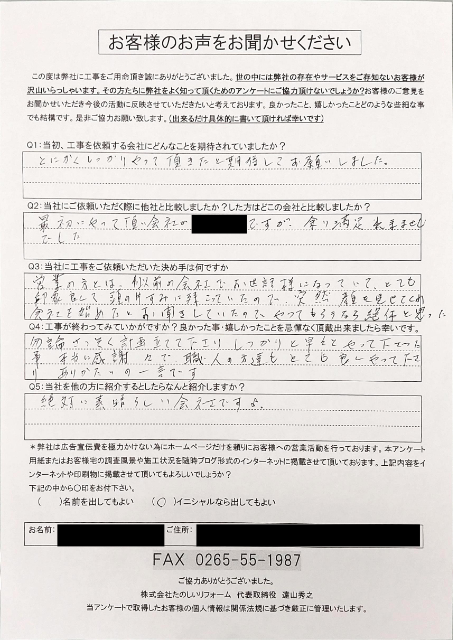 お客様のお声をお聞かせください
この度は弊社に工事をご用命頂き誠にありがとうございました。世の中には弊社の存在やサービスをご存知ないお客様が
沢山いらっしゃいます。その方たちに弊社をよく知って頂くためのアンケートにご協力頂けないでしょうか?お客様のご意見を
お聞かせいただき今後の活動に反映させていただきたいと考えております。良かったこと、嬉しかったことどのような些細な事
でも結構です。是非ご協力お願い致します。(出来るだけ具体的に書いて頂ければ幸いです)
Q1:当初、工事を依頼する会社にどんなことを期待されていましたか?
とにかくしっかりやって頂きたと期待してお願いしました。
Q2:当社にご依頼いただく際に他社と比較しましたか?した方はどこの会社と比較しましたか?
最初にやって頂い会社が ですが、余り満足出来ませ
でした
Q3:当社に工事をご依頼いただいた決め手は何ですか
営業の方とは、以前の会社でお世話様になっていて、とても
印象良くて頭のすみに残っていたので、突然顔を見せてくれ
会社を始めたとお聞きしていたので、やってもらうなら絶体と思った
Q4:工事が終わってみていかがですか?良かった事・嬉しかったことを忌憚なく頂戴出来ましたら幸いです。
勿論 計画立てて下さり しっかりと早もとやって下さった
事 本当に感謝 々で、職人の方達もとても良くやって下さ
り ありがたいの一言です
Q5:当社を他の方に紹介するとしたらなんと紹介しますか?
絶対に素晴らしい会社ですよ。
*弊社は広告宣伝費を極力かけない為にホームページだけを頼りにお客様への営業活動を行っております。本アンケート
用紙またはお客様宅の調査風景や施工状況を随時ブログ形式のインターネットに掲載させて頂いております。上記内容をイ
ンターネットや印刷物に掲載させて頂いてもよろしいでしょうか?
下記の中から○印をお付下さい。
( )名前を出してもよい (○)イニシャルなら出してもよい
お名前: ご住所:
FAX 0265-55-1987
ご協力ありがとうございました。
株式会社たのしいリフォーム 代表取締役 遠山秀之
当アンケートで取得したお客様の個人情報は関係法規に基づき厳正に管理いたします。